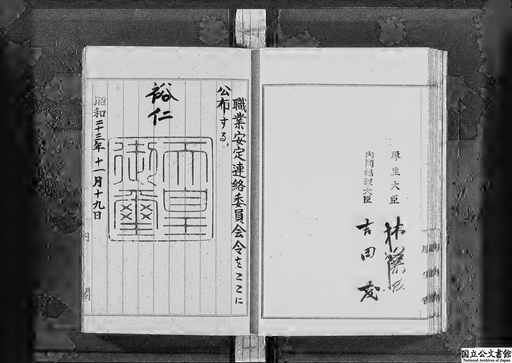 職業安定連絡委員会令をここに
公布する。
裕仁
天皇
御璽
昭和二十三年十一月十九日
内閣
厚生大臣
林譲治
内閣総理大臣
吉田茂
国立公文書館
National Archives of Japan